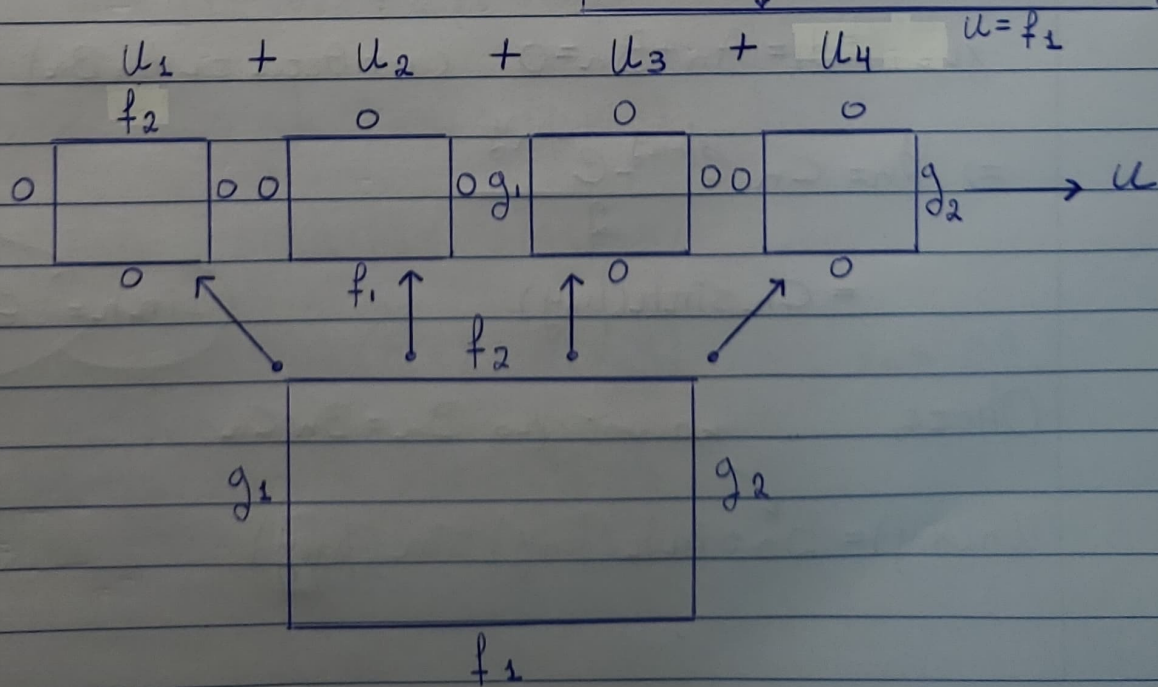 u = f₁
u₁ + u₂ + u₃ + u₄
f₂ 0 0 0
0 0 0 0 g₁ 0 0 g₂ → u
0 f₁ 0 0
f₂
g₁ g₂
f₁